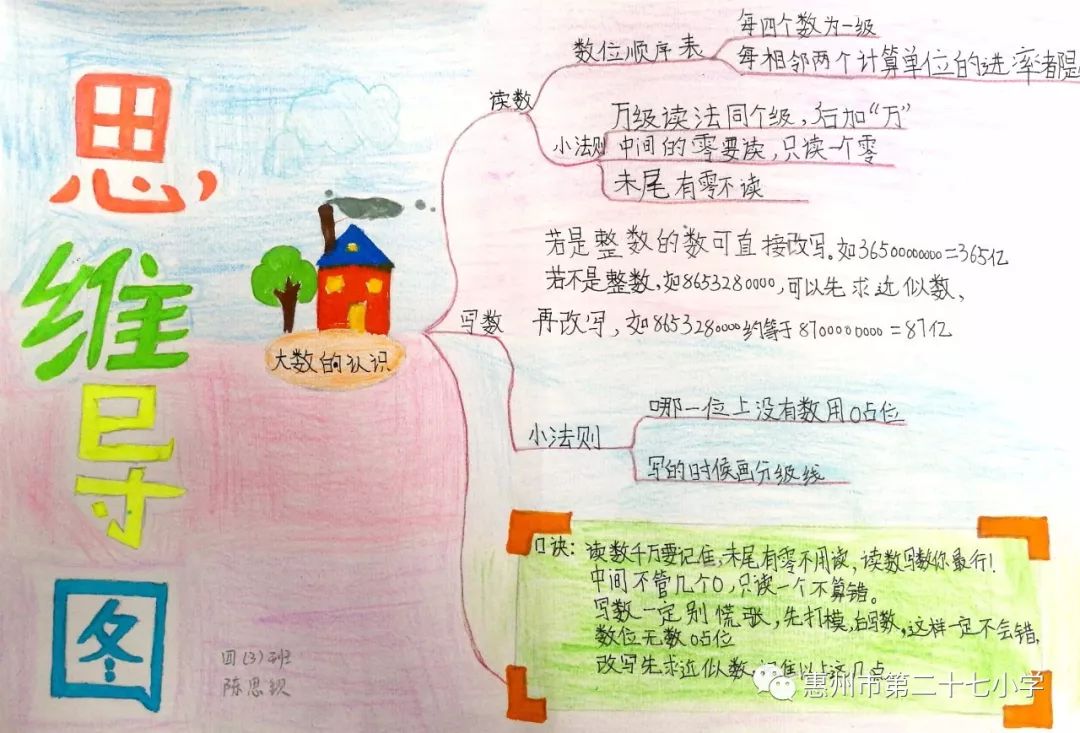 思维导图
大数的认识
读数
数位顺序表
每四个数为一级
每相邻两个计算单位的进率都是
小法则
万级读法同个级，后加“万”
中间的零要读，只读一个零
末尾有零不读
写数
若是整数的数可直接改写。如36500000000=365亿
若不是整数，如8653280000，可以先求近似数、
再改写，如8653280000约等于8700000000=87亿
小法则
哪一位上没有数用0占位
写的时候画分级线
口诀：读数千万要记住，末尾有零不用读，读数写数你最行！
中间不管几个0，只读一个不算错。
写数一定别慌张，先打模，后写数，这样一定不会错，
数位无数0占位
改写先求近似数，记住以上这几点
四（3）班
陈思
惠州市第二十七小学